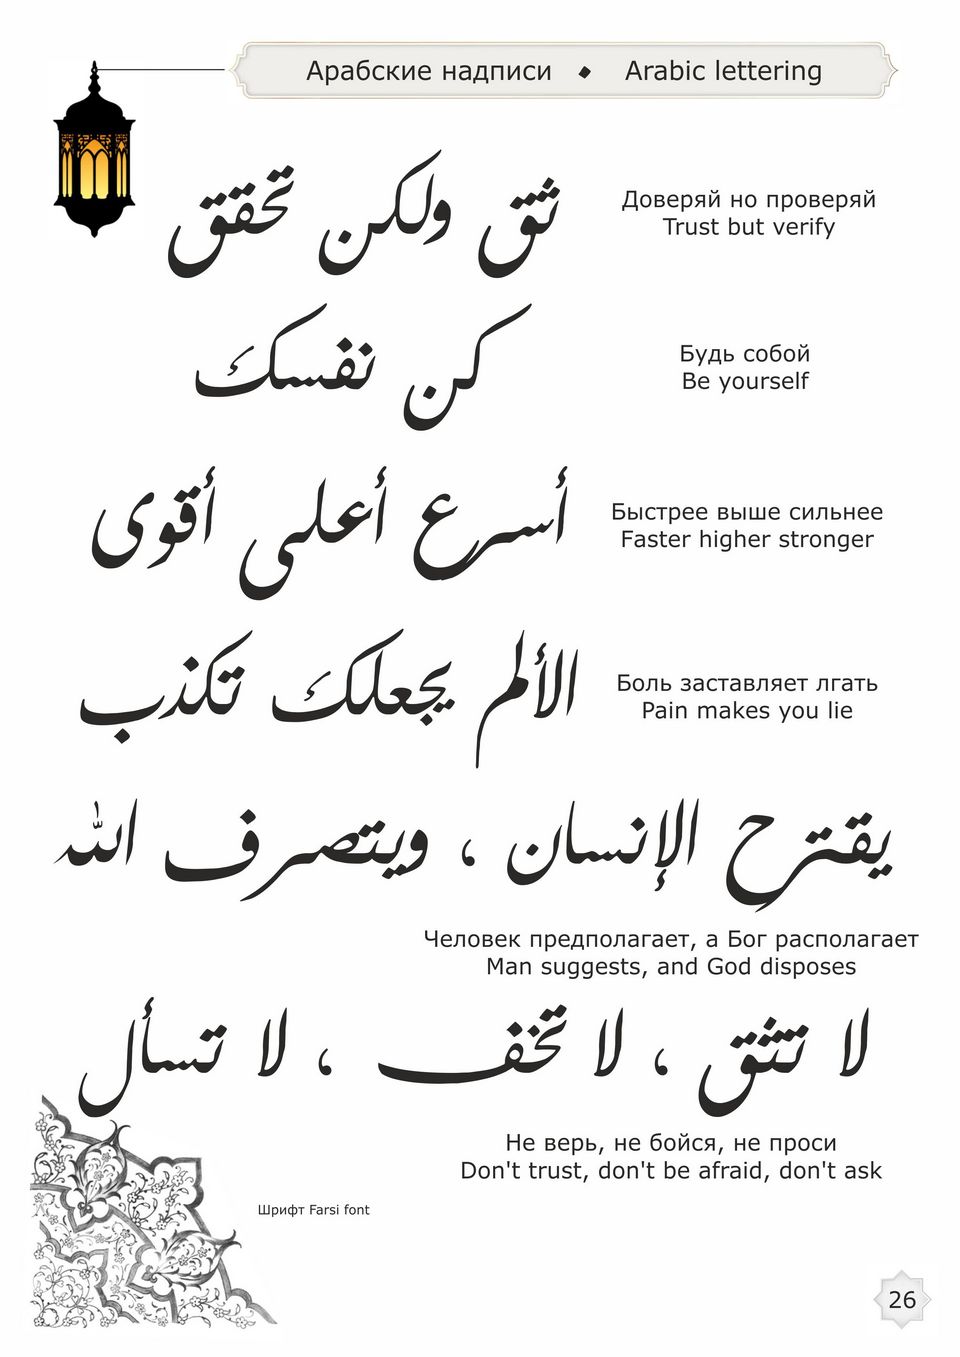 Арабские надписи ◆ Arabic lettering
ثق ولكن تحقق
Доверяй но проверяй
Trust but verify
كن نفسك
Будь собой
Be yourself
أسرع أعلى أقوى
Быстрее выше сильнее
Faster higher stronger
الألم يجعلك تكذب
Боль заставляет лгать
Pain makes you lie
يقترح الإنسان ، ويتصرف الله
Человек предполагает, а Бог располагает
Man suggests, and God disposes
لا تثق ، لا تخف ، لا تسأل
Не верь, не бойся, не проси
Don't trust, don't be afraid, don't ask
Шрифт Farsi font
26